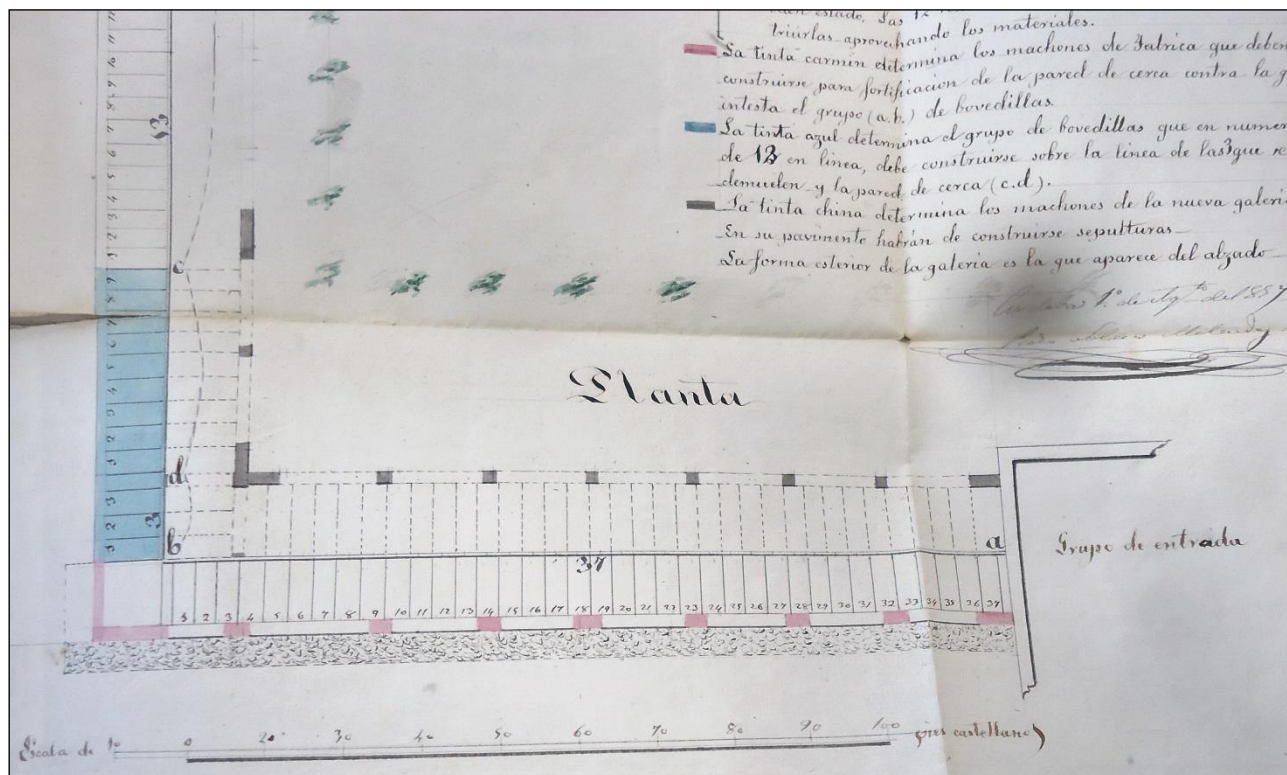 buen estado. Las 12
truirlas aprovechando los materiales.
La tinta carmin determina los machones de Fabrica que deben
construirse para fortificacion de la pared de cerca contra la q
intesta el grupo (a.b.) de bovedillas.
La tinta azul determina el grupo de bovedillas que en numer
de 12 en linea, debe construirse sobre la linea de las 3 que se
demuelen y la pared de cerca (c.d).
La tinta china determina los machones de la nueva galeri
En su pavimento habrán de construirse sepulturas
La forma esterior de la galeria es la que aparece del alzado
1.º de Agto. del 1857
Planta
13
c
d
3
b
a
37
Grupo de entrada
2 3 4 5 6 7 8 9 10 11 12 13 14 15 16 17 18 19 20 21 22 23 24 25 26 27 28 29 30 31 32 33 34 35 36 37
Escala de 10 0 20 30 40 50 60 70 80 90 100 pies castellanos